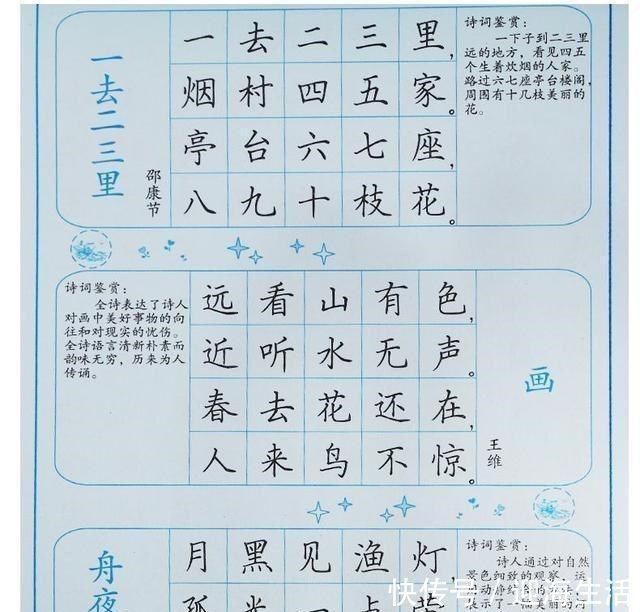 一去二三里
邵康节
一去二三里，
烟村四五家。
亭台六七座，
八九十枝花。
诗词鉴赏：
一下子到二三里
远的地方，看见四五
个生着炊烟的人家。
路过六七座亭台楼阁，
周围有十几枝美丽的
花。
诗词鉴赏：
全诗表达了诗人
对画中美好事物的向
往和对现实的忧伤。
全诗语言清新朴素而
韵味无穷，历来为人
传诵。
远看山有色，
近听水无声。
春去花还在，
人来鸟不惊。
画
王维
舟夜
月黑见渔灯，
孤光一点
诗词鉴赏：
诗人通过对自然
景色细致的观察，运
表示了一幅美丽的河
快传号／